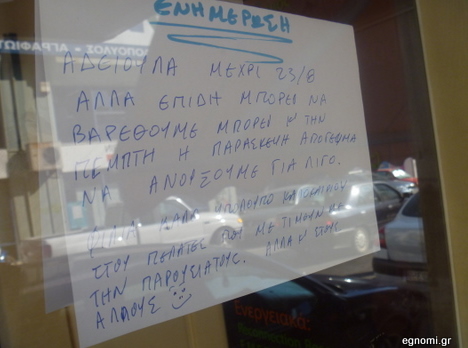 ΕΝΗΜΕΡΩΣΗ
ΑΔΕΙΟΥΛΑ ΜΕΧΡΙ 23/8
ΑΛΛΑ ΕΠΙΔΗ ΜΠΟΡΕΙ ΝΑ
ΒΑΡΕΘΟΥΜΕ ΜΠΟΡΕΙ Κ ΤΗΝ
ΠΕΜΠΤΗ Η ΠΑΡΑΣΚΕΥΗ ΑΠΟΓΕΥΜΑ
ΝΑ ΑΝΟΙΞΟΥΜΕ ΓΙΑ ΛΙΓΟ.
ΚΑΛΟ ΥΠΟΛΟΙΠΟ ΚΑΛΟΚΑΙΡΙΟΥ
ΣΤΟΥ ΠΕΛΑΤΕΣ ΠΟΥ ΜΕ ΤΙΜΟΥΝ ΜΕ
ΤΗΝ ΠΑΡΟΥΣΙΑ ΤΟΥΣ. ΑΛΛΑ Κ ΣΤΟΥΣ
ΑΛΛΟΥΣ
Ενεργειακα:
egnomi.gr